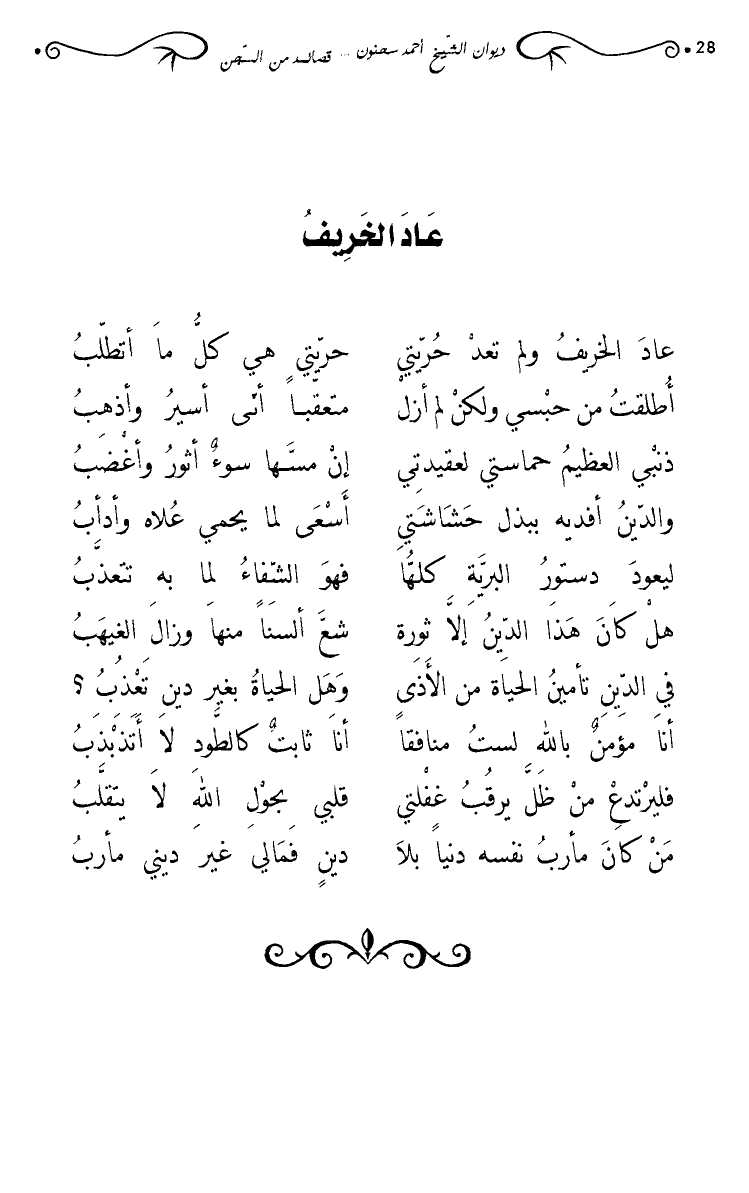 28 ديوان الشّيخ أحمد سحنون ... قصائد من السّجن
عَادَ الخَرِيفُ
عادَ الخريفُ ولم تعدْ حُرّيّتي حريّتي هي كلُّ ماَ أتطلّبُ
أُطلقتُ من حبْسي ولكنْ لم أزلْ متعقَّباً أنّى أسيرُ وأذهبُ
ذنْبي العظيمُ حماستي لعقيدتي إنْ مسَّها سوءٌ أثورُ وأغْضبُ
والدّينُ أفديه ببذل حَشَاشَتيِ أَسْعَى لما يحمي عُلاه وأدأبُ
ليعودَ دستورُ البريَّةِ كلهَّا فهوَ الشّفاءُ لما به تتعذَّبُ
هلْ كَانَ هَذَا الدّينُ إلاَّ ثورة شعَّ ألسنَاً منهاَ وزالَ الغيهَبُ
فيِ الدّينِ تأمينُ الحياة من الأَذَى وَهَل الحياةُ بغيرِ دينٍ تَعْذبُ ؟
أناَ مؤمنٌ باللهِ لستُ منافقاً أناَ ثابتٌ كالطَّود لاَ أَتَذَبْذَبُ
فليرْتدعِْ منْ ظَلَّ يرقبُ غفْلتي قلبي بِحوْلِ اللهِ لاَ يتقلَّبُ
مَنْ كانَ مأربُ نفسه دنياً بلاَ دينٍ فَمَالي غير ديني مأربُ